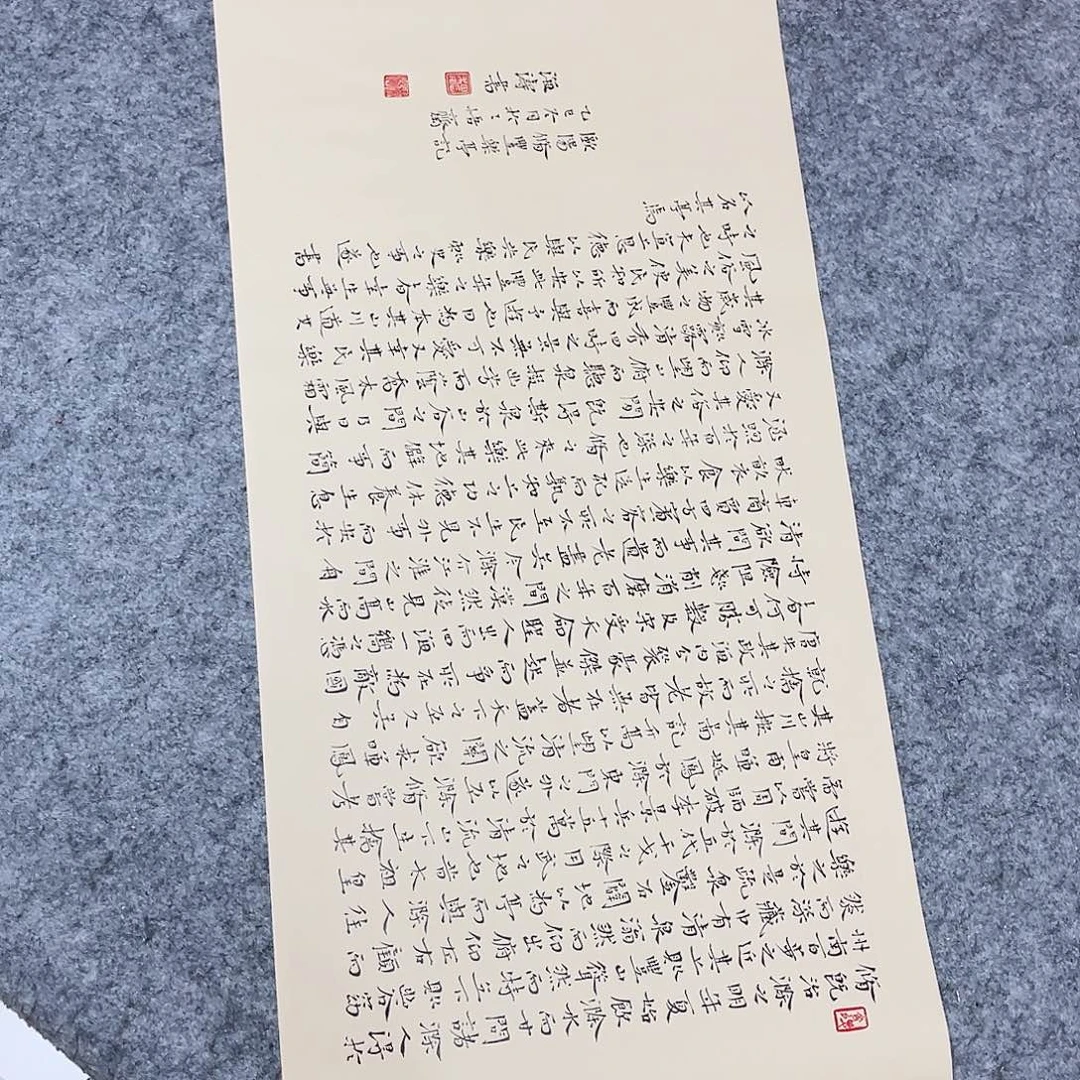 脩既治滁之明年夏始飲滁水而甘問諸滁人得於
州南百步之近其上則豐山聳然而特立下則幽谷窈
然而深藏中有清泉滃然而仰出俯仰左右顧而
樂之於是疏泉鑿石闢地以為亭而與滁人往
遊其間滁於五代干戈之際用武之地也昔太祖皇
帝嘗以周師破李景兵十五萬於清流山下生擒其
將皇甫暉姚鳳於滁東門之外遂以平滁脩嘗考
其山川按其圖記升高以望清流之關欲求暉鳳
就擒之所而故老皆無在者蓋天下之平久矣自
唐失其政海內分裂豪傑並起而爭所在為敵國
者何可勝數及宋受天命聖人出而四海一嚮之憑
恃險阻剗削消磨百年之間漠然徒見山高而水
清欲問其事而遺老盡矣今滁介江淮之間舟
車商賈四方賓客之所不至民生不見外事而安於
畎畝衣食以樂生送死而孰知上之功德休養生息
涵煦於百年之深也脩之來此樂其地僻而事簡
又愛其俗之安閒既得斯泉於山谷之間乃日與
滁人仰而望山俯而聽泉掇幽芳而蔭喬木風霜
冰雪刻露清秀四時之景無不可愛又幸其民樂
其歲物之豐成而喜與予遊也因為本其山川道其
風俗之美使民知所以安此豐年之樂者幸生無事
之時也夫宣上恩德以與民共樂刺史之事也遂書
以名其亭焉
歐陽脩豐樂亭記
乙巳冬月於三悟齋
海濤書